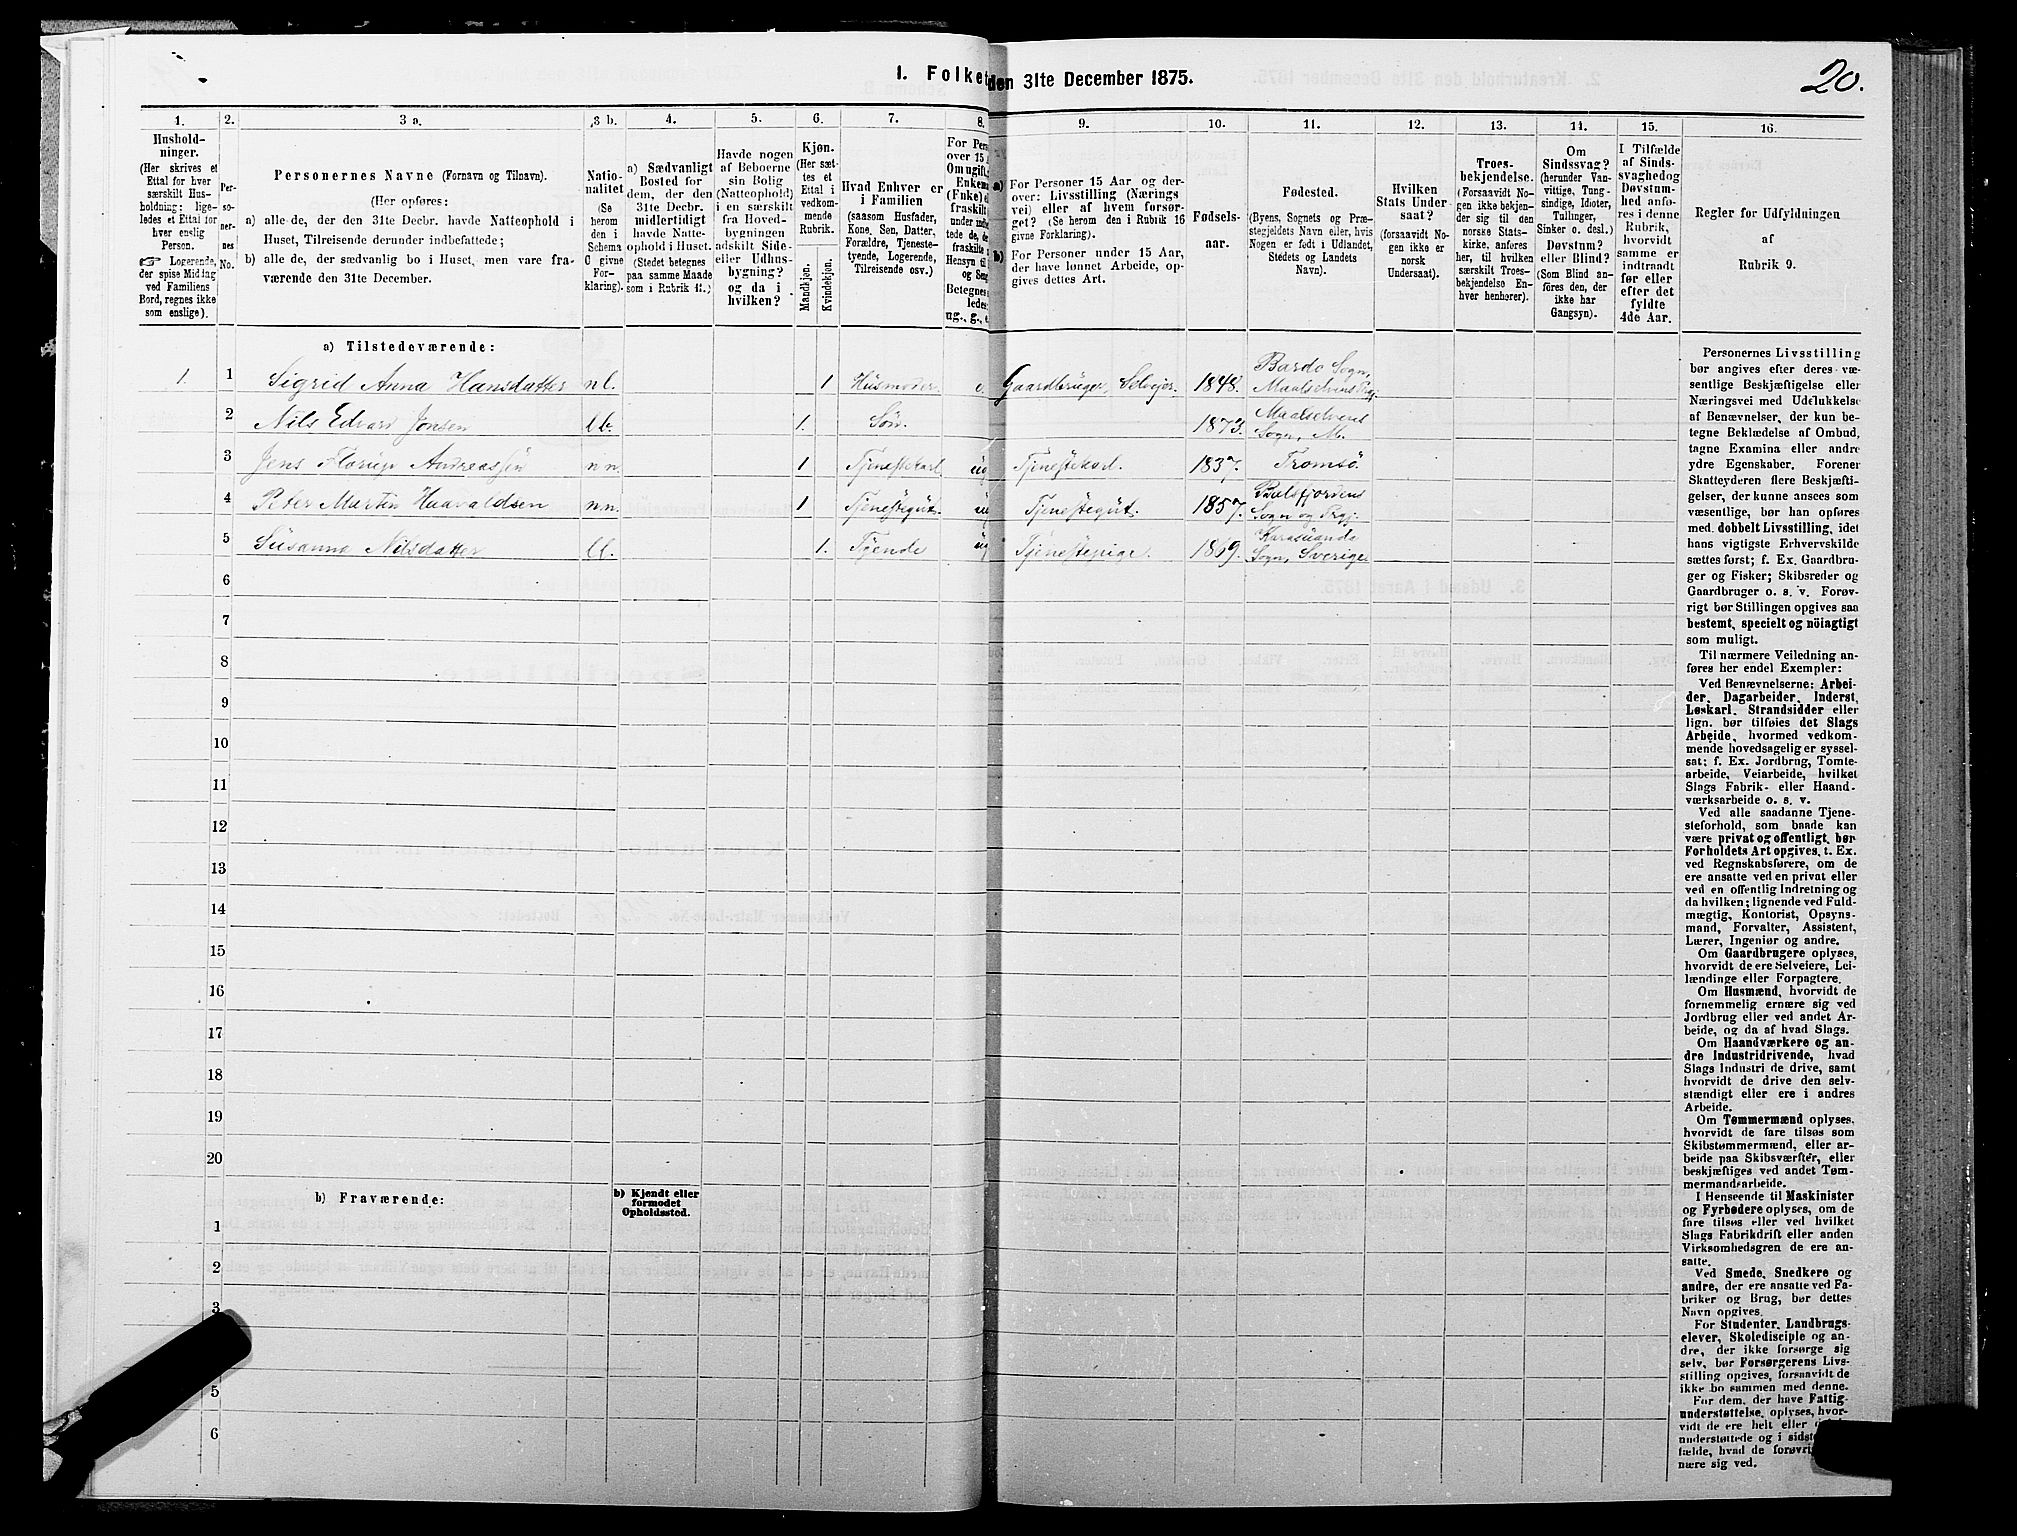 1. Folke den 31te December 1875.
20.
1. 2. 3 a. 3 b. 4. 5. 6. 7. 8. 9. 10. 11. 12. 13. 14. 15. 16.
Hushold-
ninger.
(Her skrives et
Ettal for hver
særskilt Hus-
holdning; lige-
ledes et Ettal for
hver enslig
Person.
☞ Logerende,
der spise Middag
ved Familiens
Bord, regnes ikke
som enslige).
Per-
so-
ner-
nes
No.
Personernes Navne (Fornavn og Tilnavn).
(Her opføres:
a) alle de, der den 31te Decbr. havde Natteophold i
Huset, Tilreisende derunder indbefattede;
b) alle de, der sædvanlig bo i Huset, men vare fra-
værende den 31te December.
Natio-
nalitet
(Se
herom
den i
Schema
C givne
For-
klaring).
a) Sædvanligt
Bosted for
dem, der den
31te Decbr.
midlertidigt
havde Natte-
ophold i Huset.
(Stedet betegnes
paa samme Maade
som i Rubrik 11.)
Havde nogen
af Beboerne
sin Bolig
(Natteophold)
i en særskilt
fra Hoved-
bygningen
adskilt Side-
eller Udhus-
bygning?
og da i
hvilken?
Kjøn.
(Her sæt-
tes et
Ettal i
vedkom-
mende
Rubrik.
Mandkjøn.
Kvindekjøn.
Hvad Enhver er
i Familien
(saasom Husfader,
Kone, Søn, Datter,
Forældre, Tjeneste-
tyende, Logerende,
Tilreisende osv.)
For Pers
over 15 A
Om ugift,
Enkema
(Fnke) e
fraskilt
under indt
tede de, de
fraskilte
Hensyn til
og Seng
Betegnes
ledes:
ug., g., e
a)
For Personer 15 Aar og der-
over: Livsstilling (Nærings
vei) eller af hvem forsør-
get? (Se herom den i Rubrik 16
givne Forklaring).
b)
For Personer under 15 Aar,
der have lønnet Arbeide, op-
gives dettes Art.
Fødsels-
aar.
Fødested.
(Byens, Sognets og Præ-
stegjeldets Navn eller, hvis
Nogen er født i Udlandet,
Stedets og Landets
Navn).
Hvilken
Stats Under-
saat?
(forsaavidt No-
gen ikke er
norsk
Undersaat).
Troes-
bekjendelse.
(Forsaavidt No-
gen ikke bekjen-
der sig til den
norske Stats-
kirke, anføres
her, til hvilken
særskilt Troes-
bekjendelse En-
hver henhører).
Om
Sindssvag?
(herunder Van-
vittige, Tung-
sindige, Idioter,
Tullinger,
Sinker o. desl.)
Døvstum?
eller Blind?
(Som Blind an-
føres den, der
ikke har
Gangsyn).
I Tilfælde
af Sinds-
svaghed og
Døvstum-
hed anfø-
res i denne
Rubrik,
hvorvidt
samme er
indtraadt
før eller
efter det
fyldte
4de Aar.
Regler for Udfyldningen
af
Rubrik 9.
a) Tilstedeværende:
1. 1 Sigrid Anna Hansdatter nl. 1 Husmoder e. Gaardbruger, Selvejer. 1848. Bardo Sogn,
Maalselvens Prgj.
2 Nils Edvard Jonsen lb. 1. Søn. 1873. Maalselvens
Sogn, M.
3 Jens Andreassen nn. 1 Tjenestekarl ug Tjenestekarl. 1837. Tromsø.
4 Peter Martin Haavaldsen nn. 1 Tjenestegut. ug Tjenestegut. 1857. Balsfjordens
Sogn og Prgj.
5 Susanna Nilsdatter ll. 1. Tyende ug Tjenestepige. Karasuando
Sogn, Sverige.
6
7
8
9
10
11
12
13
14
15
16
17
18
19
20
b) Fraværende:
b) Kjendt eller
formodet
Opholdssted.
1
2
3
5
6
Personernes Livsstilling
bør angives efter deres væ-
sentlige Beskjæftigelse eller
Næringsvei med Udelukkelse
af Benævnelser, der kun be-
tegne Beklædelse af Ombud,
tagne Examina eller andre
ydre Egenskaber. Forener
Skatteyderen flere Beskjæfti-
gelser, der kunne ansees som
væsentlige, bør han opføres
med dobbelt Livsstilling, idet
hans vigtigste Erhvervskilde
sættes først; f. Ex. Gaardbru-
ger og Fisker; Skibsreder og
Gaardbruger o. s. v. Forøv-
rigt bør Stillingen opgives saa
bestemt, specielt og nöiagtigt
som muligt.
Til nærmere Veiledning an-
føres her endel Exempler:
Ved Benævnelserne: Arbei-
der, Dagarbeider, Inderst,
Løskarl, Strandsidder eller
lign. bør tilføies det Slags
Arbeide, hvormed vedkom-
mende hovedsagelig er syssel-
sat; f. Ex. Jordbrug, Tomte-
arbeide, Veiarbeide, hvilket
Slags Fabrik- eller Haand-
værksarbeide o. s. v.
Ved alle saadanne Tjene-
steforhold, som baade kan
være privat og offentligt, bør
Forholdets Art opgives, t. Ex.
ved Regnskabsførere, om de
ere ansatte ved en privat eller
ved en offentlig Indretning og
da hvilken; lignende ved Fuld-
mægtig, Kontorist, Opsyns-
mand, Forvalter, Assistent,
Lærer, Ingeniør og andre.
Om Gaardbrugere oplyses,
hvorvidt de ere Selveiere, Lei-
lændinge eller Forpagtere.
Om Husmænd, hvorvidt de
fornemmelig ernære sig ved
Jordbrug eller ved andet Ar-
beide, og da af hvad Slags.
Om Haandværkere og an-
dre Industridrivende, hvad
Slags Industri de drive, samt
hvorvidt de drive den selv-
stændigt eller ere i andres
Arbeide.
Om Tømmermænd oplyses,
hvorvidt de fare tilsøs som
Skibstømmermænd, eller ar-
beide paa Skibsværfter, eller
beskjæftiges ved andet Tøm-
mermandsarbeide.
I Henseende til Maskinister
og Fyrbødere oplyses, om de
fare tilsøs eller ved hvilket
Slags Fabrikdrift eller anden
Virksomhedsgren de ere an-
satte.
Ved Smede, Snedkere og
andre, der ere ansatte ved Fa-
briker og Brug, bør dettes
Navn opgives.
For Studenter, Landbrugs-
elever, Skoledisciple og an-
dre, der ikke forsørge sig
selv, bør Forsørgerens Livs-
stilling opgives, forsaavidt de
ikke bo sammen med denne.
For dem, der have Fattig-
understøttelse, oplyses, hvor-
vidt de ere helt eller
understøttede og i sidst
fælde, hvad de forøvri
nære sig ved.